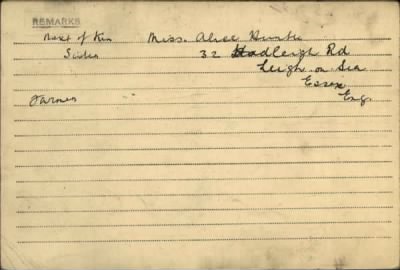 REMARKS
Next of Kin Miss. Alice
Sister 32 Hadleigh Rd
Leigh on Sea
Essex
Farmer Eng.